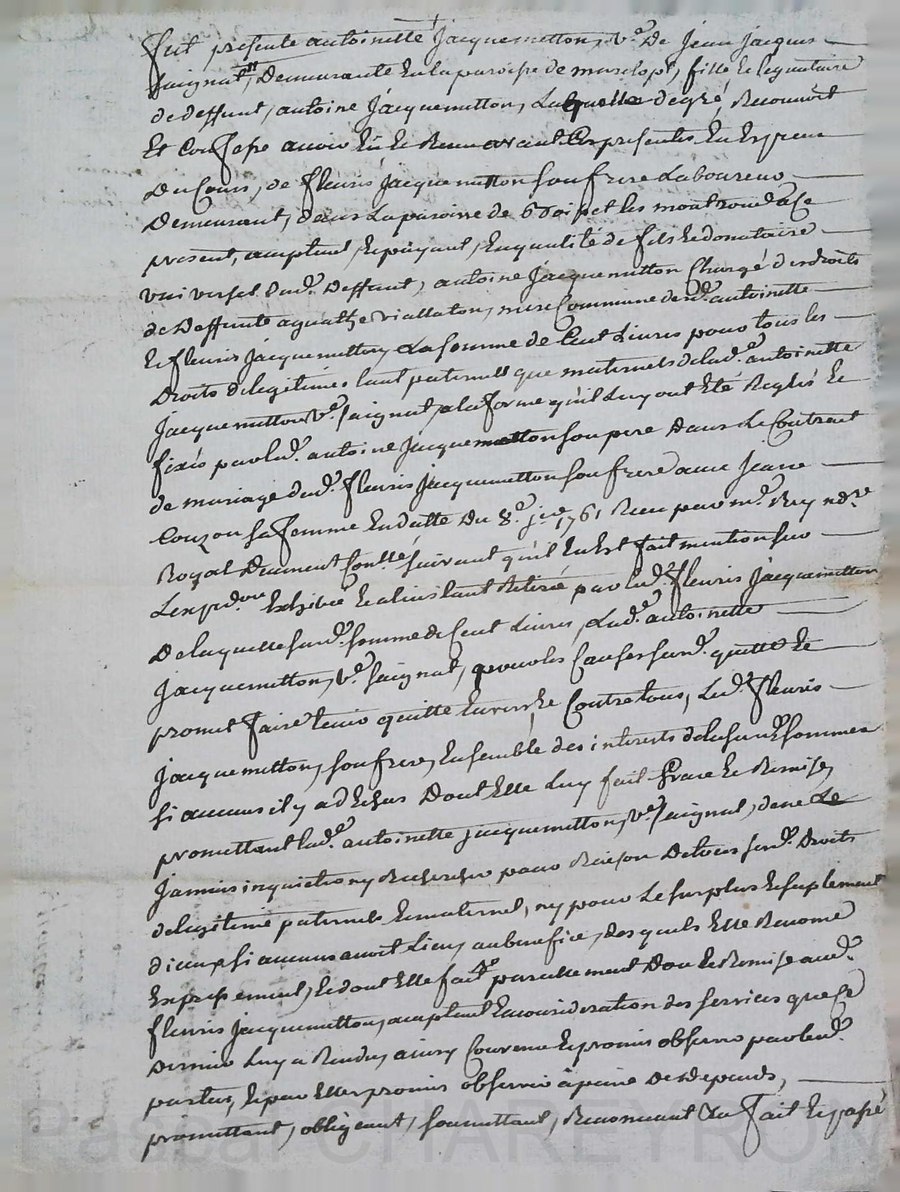 fut presente antoinette Jacquemetton, v.e De Jean Jacques
Saignat, Demeurante En la paroisse de , fille Et legataire
de deffunt, antoine Jacquemetton, Laquelle de gré, Reconnoit
Et Confesse avoir Eu Et Receu avant Ces presentes En Especes
Du Cours, de fleuris Jacquemetton son frere Laboureur
Demeurant, dans La paroisse de Boisset les montrond a Ce
present, aceptant, Et payant, En qualité de fils Et donataire
universel dud.t Deffunt, antoine Jacquemetton Chargé des droits
de Deffunte agathe viallaton, mere Commune desd. antoinette
Et fleuris Jacquemetton, La somme de Cent Livres pour tous les
Droits de legitimes tant paternels que maternels de lad.e antoinette
Jacquemetton v.e Saignat, a la forme qu'il Luy ont Eté Reglés Et
fixés par led. antoine Jacquemetton son pere Dans Le Contract
de mariage dud. fleuris Jacquemetton son frere avec Jeane
Couzon sa femme En datte Du 8.e 1761 Receu par m.e Rey no.re
Royal Deument Con.llé suivant qu'il En Est fait mention sur
L'expedon Exhibée Et a l'instant Retirée par led. fleuris Jacquemetton
De laquelle susd. somme de Cent Livres, Lad.e antoinette
Jacquemetton, v.e Saignat, pour les Causes susd. quitte Et
promet faire tenir quitte Envers Et Contre tous, Led. fleuris
Jacquemetton, son frere, Ensemble des interets de la susd. somme
si aucuns il y a d'Echus Dont Elle Luy fait Grace Et Remise,
promettant lad.e antoinette Jacquemetton, v.e Saignat, de ne Le
Jamais inquietter ny Rechercher pour Raison De tous susd. Droits
de legitime paternels Et maternel, ny pour Le surplus Et suplement
d'iceux si aucuns avoit Lieu, au benefice, des quels Elle Renonce
Expressement, Et dont Elle fait pareillement Don Et Remise aud.
fleuris Jacquemetton, aceptant En consideration des services que Ce
Dernier Luy a Rendus, ainsy Convenu Et promis observer par lesd.
parties, Et par Elles promis observer à peine De Depends,
promettant, obligeant, soumettant, Renonceant &a Fait Et passé
Pascal CHAREYRON